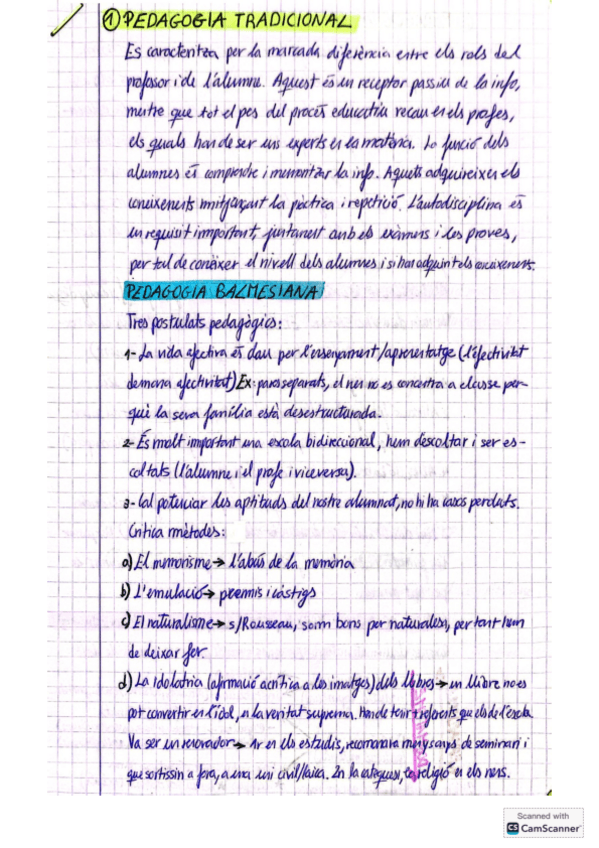 ① PEDAGOGIA TRADICIONAL
Es caracteritza per la marcada diferència entre els rols del
professor i de l'alumne. Aquest és un receptor passiu de la info,
mentre que tot el pes del procés educatiu recau en els profes,
els quals han de ser uns experts en la matèria. La funció dels
alumnes és comprendre i memoritzar la info. Aquets adquireixen els
coneixements mitjançant la pràctica i repetició. L'autodisciplina és
un requisit important, juntament amb els exàmens i les proves,
per tal de conèixer el nivell dels alumnes i si han adquirit els coneixements.
PEDAGOGIA BALMESIANA
Tres postulats pedagògics:
1- La vida afectiva és clau per l'ensenyament/aprenentatge (l'efectivitat
demana afectivitat) Ex: pares separats, el nen no es concentra a classe per-
què la seva família està desestructurada.
2- És molt important una escola bidireccional, hem d'escoltar i ser es-
coltats (l'alumne i el profe i viceversa).
3- Cal potenciar les aptituds del nostre alumnat, no hi ha casos perduts.
Critica mètodes:
a) El memorisme → l'abús de la memòria
b) L'emulació → premis i càstigs
c) El naturalisme → s/Rousseau, som bons per naturalesa, per tant hem
de deixar fer.
d) La Idolatria (afirmació acrítica a les imatges) dels llibres → un llibre no es
pot convertir en l'ídol, en la veritat suprema. Han de tenir + referents que els de l'escola
Va ser un renovador → 1r en els estudis, recomanava menys anys de seminari i
que sortissin a fora, a una uni civil/laica. 2n la catequesi, la religió en els nens.
Scanned with
CS CamScanner